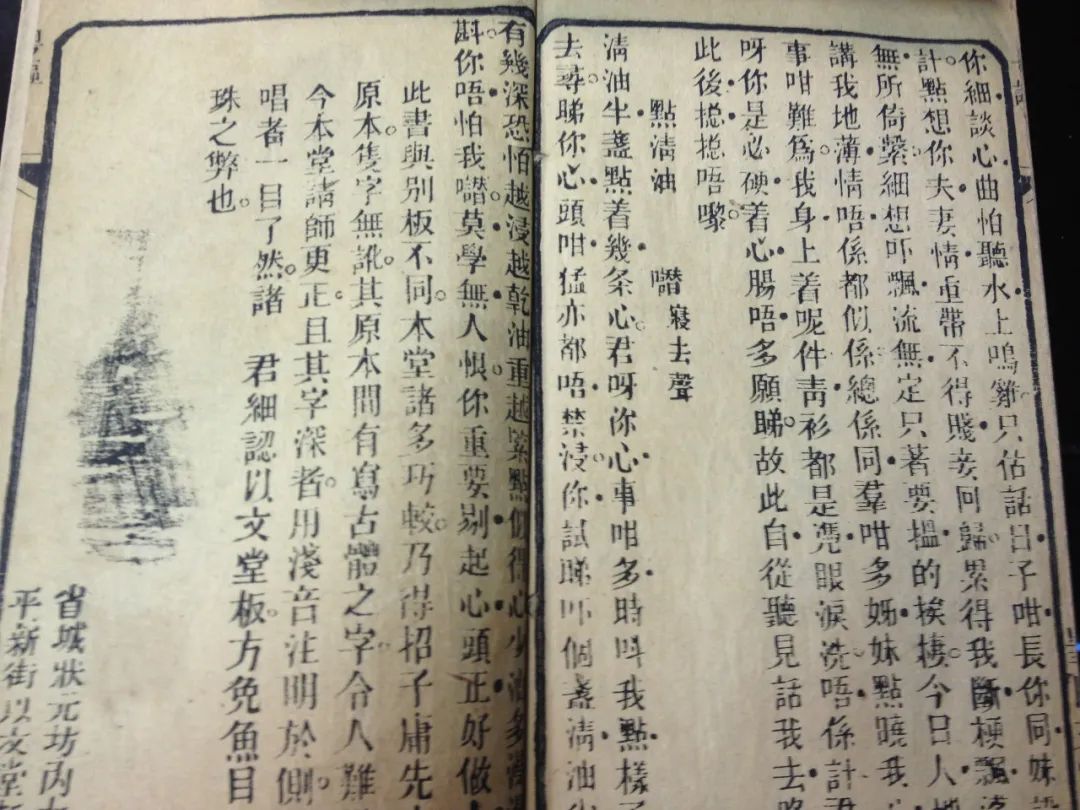 你細談心曲怕聽水上鳴雞只估話日子咁長你同妹
計點想你夫妻情重帶不得賤妾同歸累得我斷梗飄
無所倚縈細想吓飄流無定只著要搵的挨棲今日人地
講我地薄情唔係都似係總係同羣咁多姊妹點曉我
事咁難為我身上着呢件靑衫都是凴眼淚洗唔係計
呀你是必硬着心腸唔多願睇故此自從聽見話我去
此後搃搃唔嚟
點淸油
㘔寢去聲
淸油半盞點着幾条心君呀你心事咁多時呌我點樣
去尋睇你心頭咁猛亦都唔禁浸你試睇吓個盞淸油
有幾深恐怕越浸越乾油重越緊點似得心少油多
斟你唔怕我㘔莫學無人恨你重要剔起心頭正好做
此書與別板不同本堂諸多巧較乃得招子庸先
原本隻字無訛其原本間有寫古體之字令人難
今本堂諸師更正且其字深者用淺音注明於側
唱者一目了然諸 君細認以文堂板方免魚目
珠之弊也
省城狀元坊內
平新街以文堂